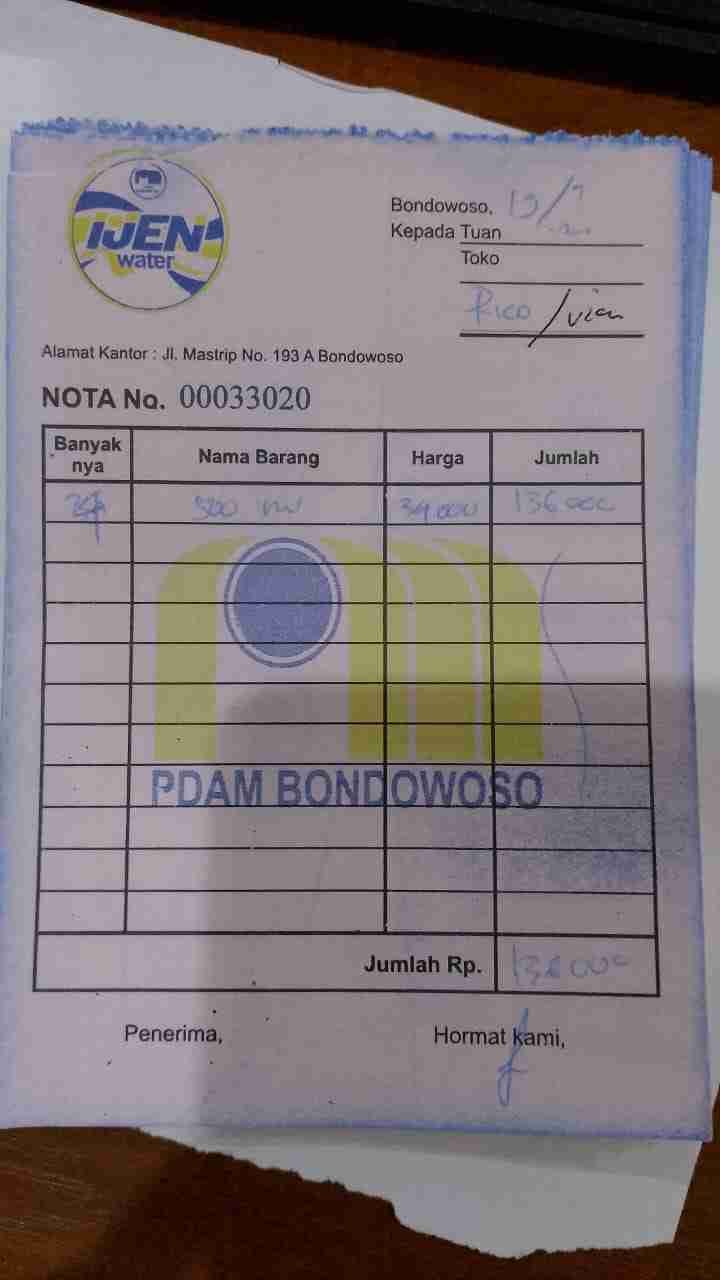 IJEN
water
Bondowoso,
Kepada Tuan
Toko
Rico / vien
Alamat Kantor : Jl. Mastrip No. 193 A Bondowoso
NOTA No. 00033020
Banyak nya Nama Barang Harga Jumlah
500 ml 34.000 136.000
PDAM BONDOWOSO
Jumlah Rp. 136.000
Penerima, Hormat kami,